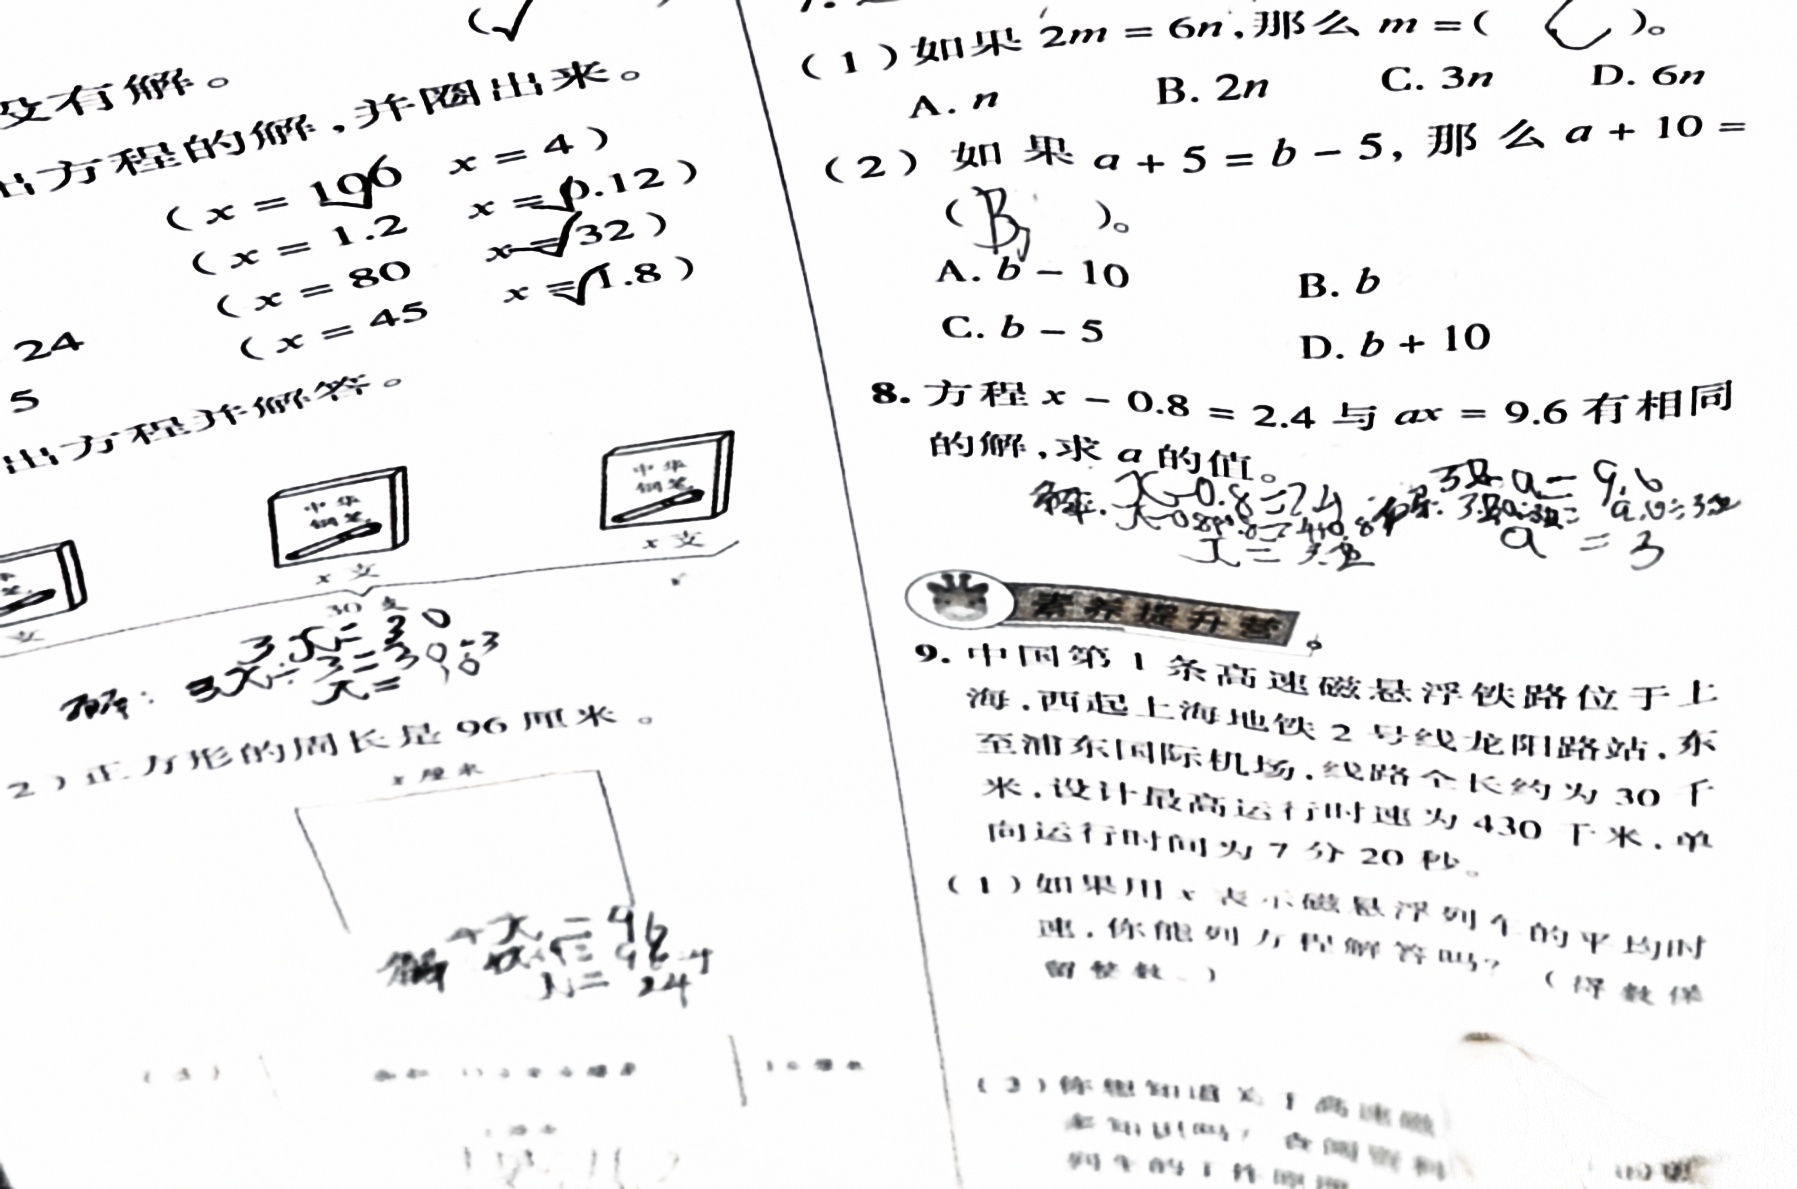 没有解。
出方程的解,并圈出来。
(x = 196 x = 4)
(x = 1.2 x = 0.12)
(x = 80 x = 32)
(x = 45 x = 1.8)
24
5
出方程并解答。
中华
钢笔
中华
钢笔
x 支
x 支
30 支
3x = 30
解: 3x÷3=30÷3
x =
2)正方形的周长是 96 厘米。
x 厘米
4x = 96
解
x = 24
(3)
(1)如果 2m = 6n,那么 m =( C )。
A. n B. 2n C. 3n D. 6n
(2)如果 a + 5 = b - 5,那么 a + 10 =
( B )。
A. b - 10 B. b
C. b - 5 D. b + 10
8. 方程 x - 0.8 = 2.4 与 ax = 9.6 有相同
的解,求 a 的值。
解: x-0.8=2.4
x-0.8+0.8=2.4+0.8
x = 3.2
3.2a = 9.6
a = 3
素养提升营
9. 中国第 1 条高速磁悬浮铁路位于上
海,西起上海地铁 2 号线龙阳路站,东
至浦东国际机场,线路全长约为 30 千
米,设计最高运行时速为 430 千米,单
向运行时间为 7 分 20 秒。
(1)如果用 x 表示磁悬浮列车的平均时
速,你能列方程解答吗?(得数保
留整数。)
(2)你想知道 高速磁